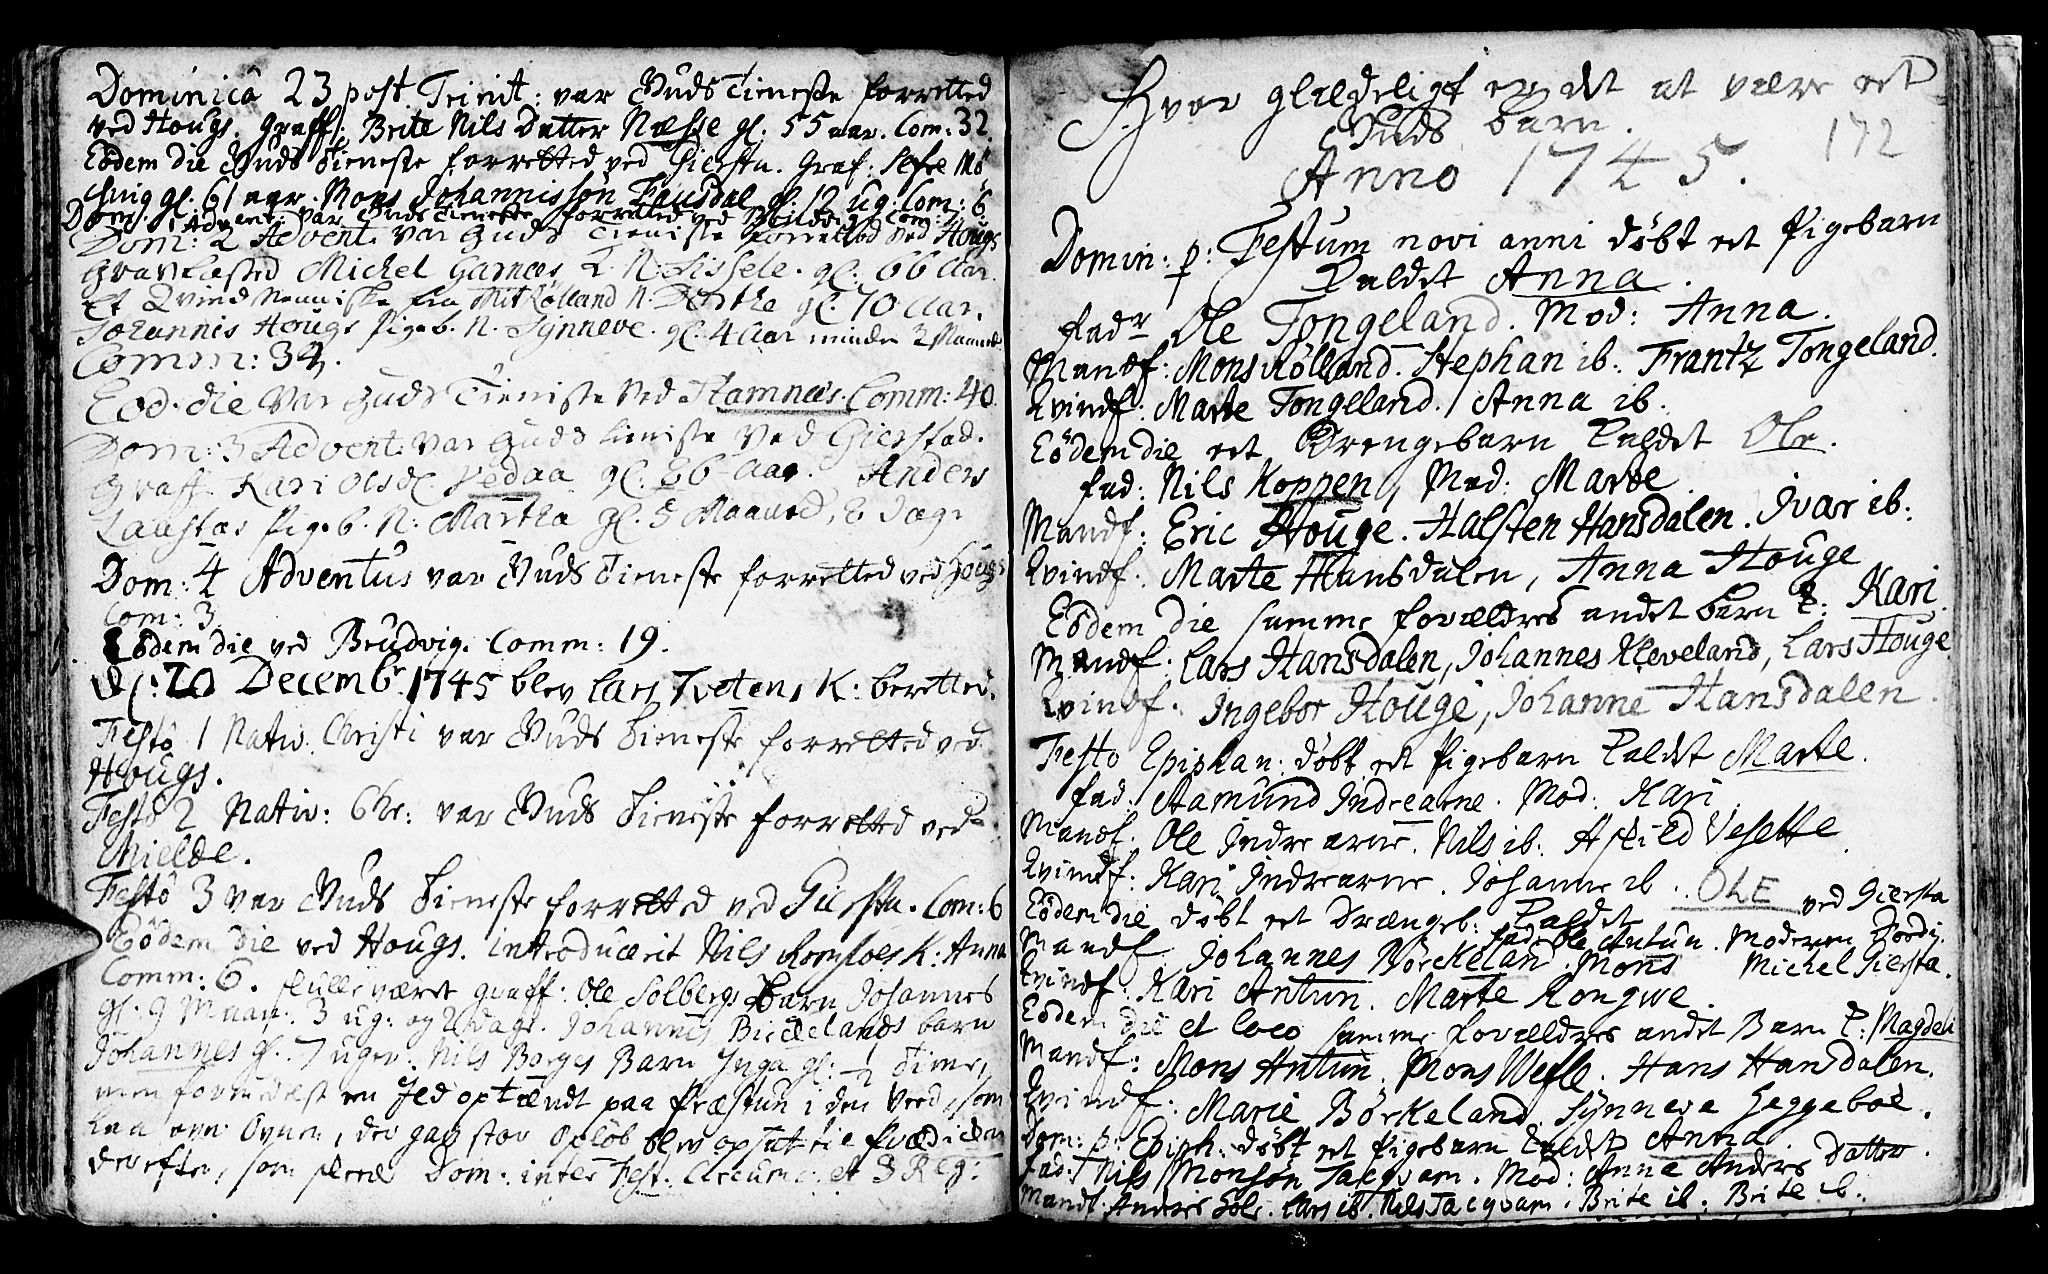 Dominica 23 post Trinit: var Guds Tieneste forretted
ved Hougs. Graff: Brite Nils Datter Næsse gl. 55 aar. Com: 32.
Eödem die Guds Tieneste forretted ved Giersta. Graf:
gl. 61 aar. Mons Johannisson gl. 12 ug. Com: 6
Dom: 1 Advent: var Guds Tieneste forretted ved
Dom: 2 Advent. var Guds Tieniste forretted ved Hougs
Gravfæsted Michel Garnæs N: Sissele. gl. 66 Aar.
Et Qvind Menniske fra Mitkølland N: Dorthe gl. 70 Aar.
Johannis Hougs Pigeb. N. Synneve. gl. 4 Aar minder 2 Maaned.
Comm: 34.
Eod. die var Guds Tieniste ved Stamnæs. Comm: 40.
Dom: 3 Advent: var Guds tieniste ved Gierstad.
Graff. Kari Olsd. Vedaa gl: 86 Aar. Anders
Laustas Pigeb. N: Martha gl. 5 Maaned, 8 dage
Dom: 4 Adventus var Guds Tieneste forretted ved Hougs
Com: 3.
Eödem die ved Brudvig. Comm: 19.
D: 20 Decembr 1745 blev Lars Tvetens K: berettet.
Festö 1 Nativ. Christi var Guds Tieneste forretted ved
Hougs.
Festö 2 Nativ: Chr: var Guds Tieneste forretted ved
Mielde.
Festö 3 var Guds Tieneste forretted ved Giersta. Com: 6
Eödem die ved Hougs. introducerit Nils K: Anna
Comm: 6. skulle været graff: Ole Solbergs Barn Johannes
gl. 9 Maan: 3 ug: og 2 dage. Johannes Birkelands barn
Johannes gl. 7 uger. Nils Borges Barn Inga gl: ½ Time,
men formedelst en Ild optændt paa Præstun i den Veed, som
laa Ovnen, der gav stor Opløb blev opsat til Prædiken
derefter, som skeede Dom. inter Fest. Circumc: et 3 Reg:
Hvor glædeligt er det at være et
Guds barn.
172
Anno 1745.
Domin: p: Festum novi anni døbt et Pigebarn
Kaldet Anna.
Fadr Ole Tongeland. Mod: Anna.
Mandf: Mons Rölland. Stephan ib. Frantz Tongeland.
Kvindf: Marte Tongeland. Anna ib.
Eödem die et Drengebarn Kaldet Ole.
Fad: Nils Koppen, Mod: Marte
Mandf: Eric Houge. Halsten Hansdalen. Ivar ib:
Kvindf: Marte Hansdalen, Anna Houge
Eödem die samme forældres andet barn K: Kari
Mandf: Lars Hansdalen, Johannes Kleveland, Lars Houge
Kvindf. Ingebor Houge, Johanne Hansdalen.
Festo Epiphan: døbt et Pigebarn Kaldet Marte.
Fad: Aamund Indrearne. Mod: Kari.
Mandf. Ole Indrearne. Nils ib. Askild Vesette
Kvindf: Kari Indrearne. Johanne ib.
Eödem die døbt et Drængeb: Kaldet OLE ved Giersta
Fad: Ole Antun. Moderen
Mandf Johannes Börckeland. Mons Michel Giersta.
Kvindf: Kari Antun. Marte Rongwe.
Eödem die et loco samme Forældres andet Barn K: Magdeli
Mandf: Mons Antun. Mons Wefle. Hans Hansdalen.
Kvindf: Marie Börkeland. Synneve Heggeboe.
Dom: p: Epiph: døbt et Pigebarn Kaldet Anna.
Fad: Nils Monsön Tacqvam. Mod: Anna Anders Datter.
Mandf. Anders Lars ib. Nils Tacqvam. Brite ib: Brite ib: